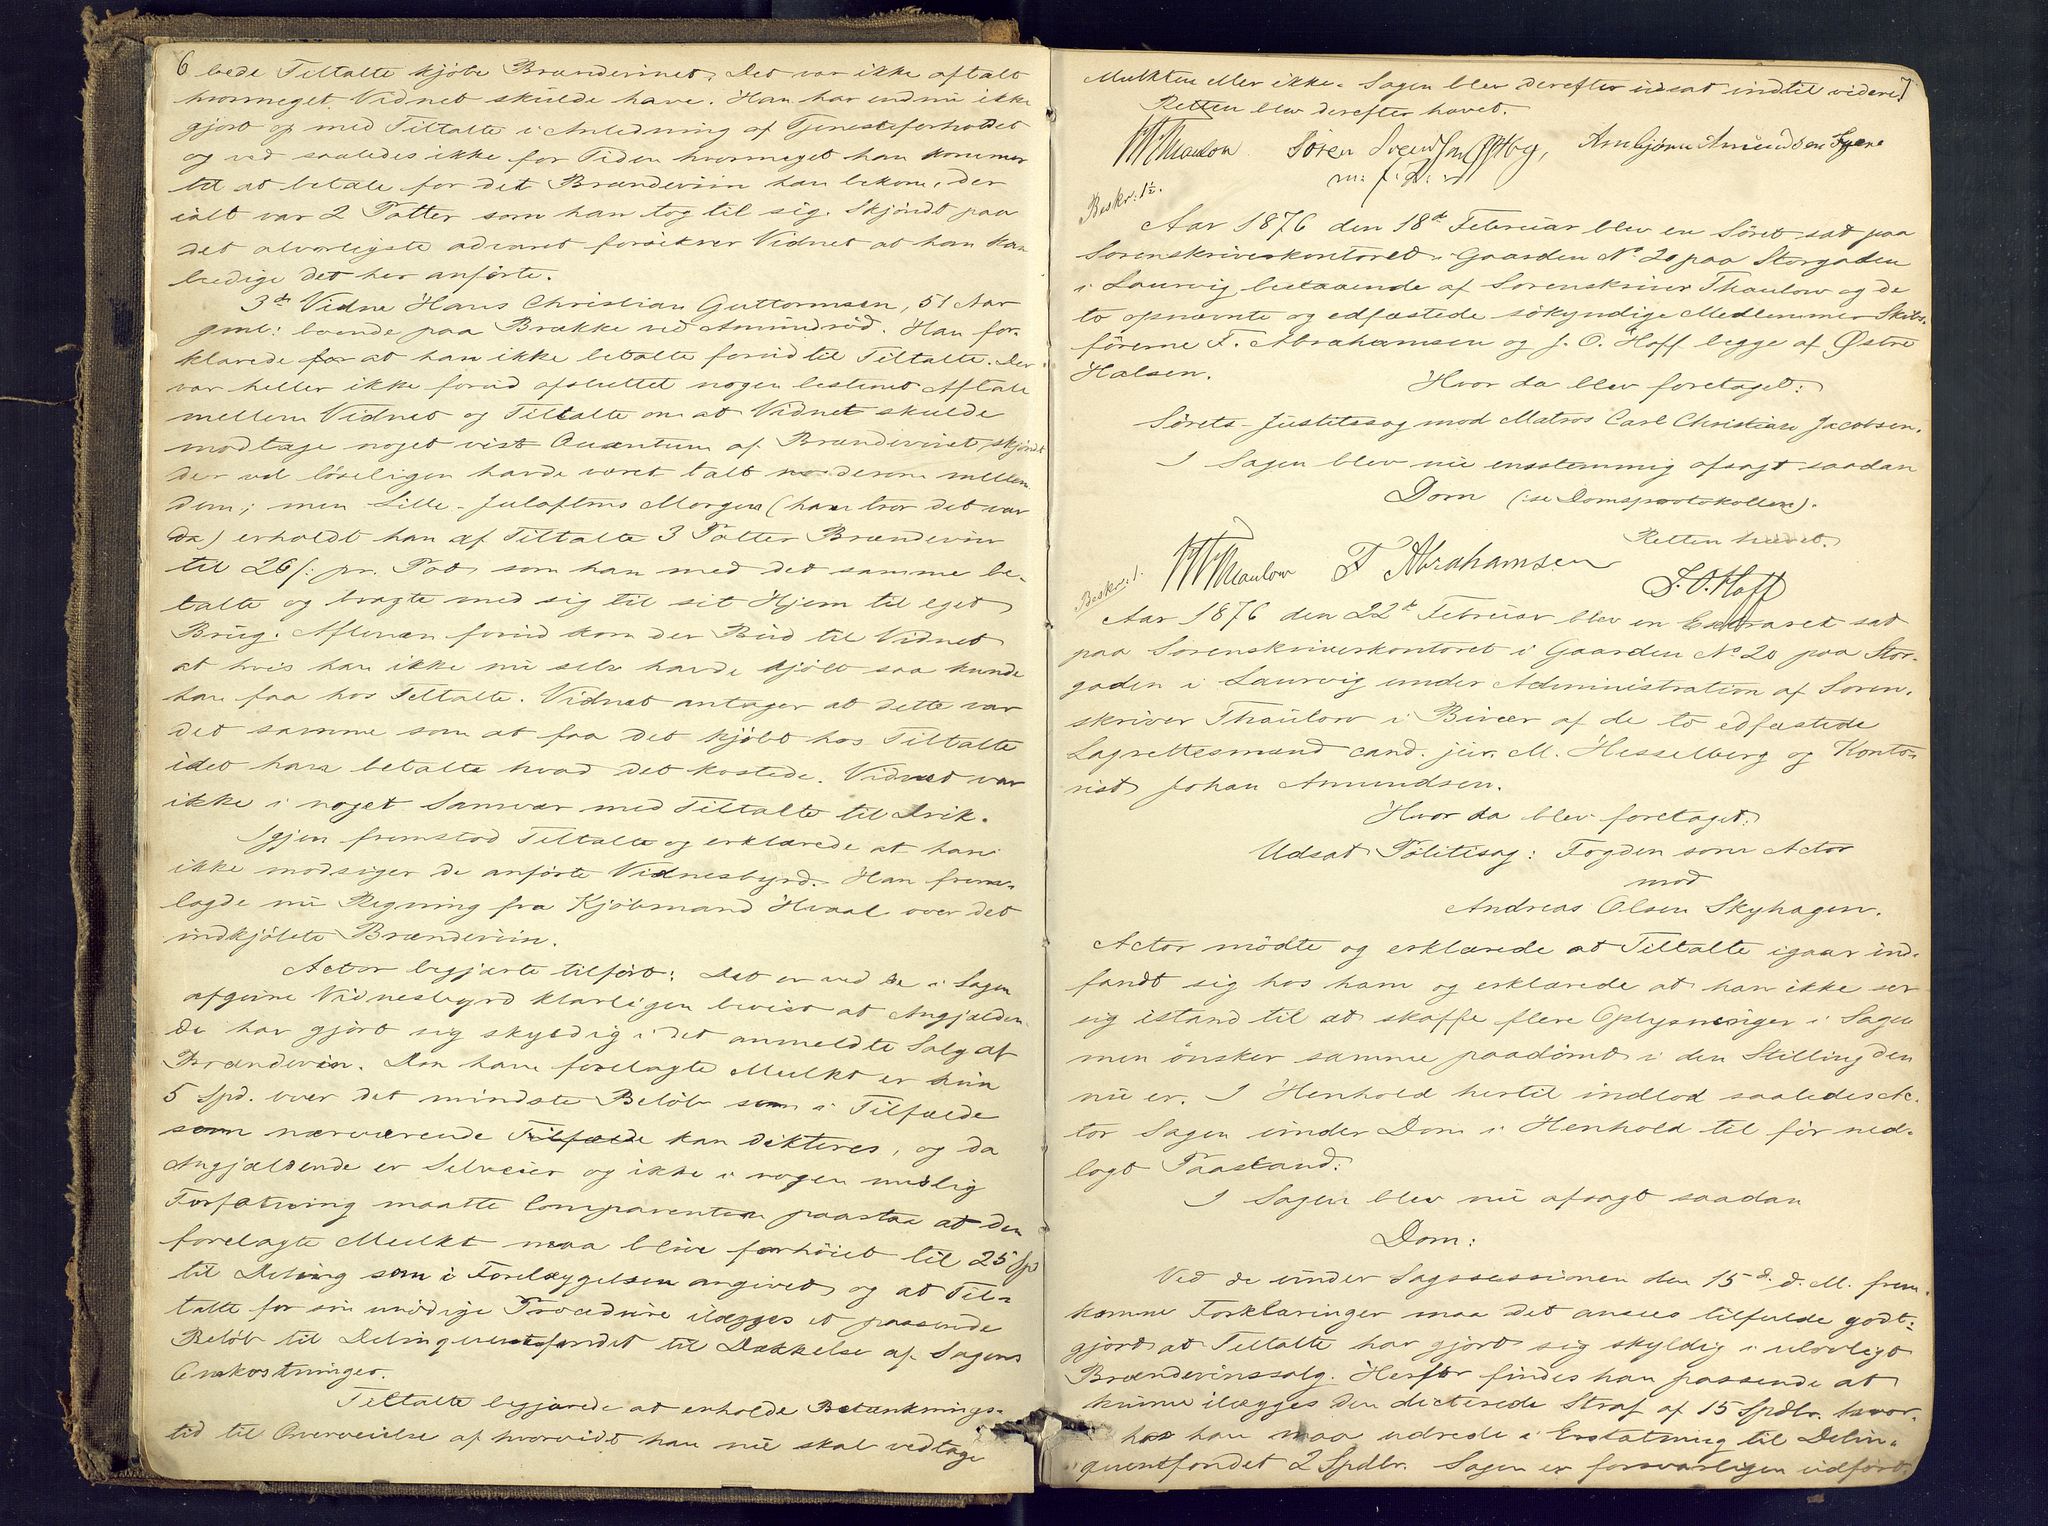 6
bede Tiltalte kjøbe Brændevinet. Det var ikke aftalt
hvormeget Vidnet skulde have. Han har endnu ikke
gjort op med Tiltalte i Anledning af Tjenesteforholdet
og ved saaledes ikke for Tiden hvormeget han kommer
til at betale for det Brændeviin han bekom, der
ialt var 2 Potter som han tog til sig. Skjøndt paa
det alvorligste advaret forsikrer Vidnet at han kan
beedige det her anførte.
3die Vidne Hans Christian Guttormsen, 51 Aar
gml: boende paa Brække ved Amundrød. Han for-
klarede for at han ikke betalte forud til Tiltalte. Der
var heller ikke forud afsluttet nogen bestemt Aftale
mellem Vidnet og Tiltalte om at Vidnet skulde
modtage noget vist Quantum af Brændevinet, skjøndt
der vel løseligen havde været talt derom mellem
dem; men Lille-Juleaftens Morgen (han tror det var
da) erholdt han af Tiltalte 3 Potter Brændeviin
til 26 s: pr. Pot, som han med det samme be-
talte og bragte med sig til sit Hjem til eget
Brug. Aftenen forud kom der Bud til Vidnet
at hvis han ikke nu selv havde kjøbt saa kunde
han faa hos Tiltalte. Vidnet antager at dette var
det samme som at faa det kjøbt hos Tiltalte
idet han betalte hvad det kostede. Vidnet var
ikke i noget Samvær med Tiltalte til Drik.
Igjen fremstod Tiltalte og erklærede at han
ikke modsiger de anførte Vidnesbyrd. Han frem-
lagde nu Regning fra Kjøbmand Hvaal over det
indkjøbte Brændeviin.
Actor begjærte tilført: Det er ved de i Sagen
afgivne Vidnesbyrd klarligen bevist at Angjælden-
de har gjort sig skyldig i det anmeldte Salg af
Brændeviin. Den ham forelagte Mulkt er kun
5 Spd. over det mindste Beløb som i Tilfælde
som nærværende Tilfælde kan dikteres, og da
Angjældende er Selveier og ikke i nogen mislig
Forfatning maatte Comparenten paastaa at den
forelagte Mulkt maa blive forhøiet til 25 Spd
til Deling som i Forelæggelsen angivet og at Til-
talte for sin unødige Procedure ilægges et passende
Beløb til Delinquentfondet til Dækkelse af Sagens
Omkostninger.
Tiltalte begjærede at erholde Betænknings-
tid til Overveielse af hvorvidt han nu skal vedtage
7
Mulkten eller ikke. Sagen blev derefter udsat indtil videre.
Retten blev derefter hævet.
WThaulow Søren Svendsen Arnbjørn Amundsen
m. f. P.
Beskr: 1½.
Aar 1876 den 18de Februar blev en Søret sat paa
Sorenskriverkontoret i Gaarden No 20 paa Storgaden
i Laurvig bestaaende af Sorenskriver Thaulow og de
to opnævnte og edfæstede søkyndige Medlemmer Skibs-
førerne F. Abrahamsen og J. O. Hoff begge af Østre
Halsen.
Hvor da blev foretaget:
Sørets-Justitssag mod Matros Carl Christian Jacobsen.
I Sagen blev nu eensstemmig afsagt saadan
Dom (se Domsprotokollen).
Retten hævet.
WThaulow F Abrahamsen J. O. Hoff
Beskr: 1.
Aar 1876 den 22de Februar blev en Extraret sat
paa Sorenskriverkontoret i Gaarden No 20 paa Stor-
gaden i Laurvig under Administration af Soren-
skriver Thaulow i Bivær af de to edfæstede
Lagrettesmænd cand. jur. M. Hesselberg og Konto-
rist Johan Amundsen.
Hvor da blev foretaget:
Udsat Politisag: Fogden som Actor
mod
Andreas Olsen Skyhagen.
Actor mødte og erklærede at Tiltalte igaar ind-
fandt sig hos ham og erklærede at han ikke ser
sig istand til at skaffe flere Oplysninger i Sagen
men ønsker samme paadømt i den Stilling den
nu er. I Henhold hertil indlod saaledes Ac-
tor Sagen under Dom i Henhold til før ned-
lagt Paastand.
I Sagen blev nu afsagt saadan
Dom:
Ved de under Sagssessionen den 15d. d. M. frem-
komne Forklaringer maa det ansees tilfulde godt-
gjort at Tiltalte har gjort sig skyldig i ulovligt
Brændevinssalg. Herfor findes han passende at
kunne ilægges den dicterede Straf af 15 Spdlr. hvor-
hos han maa udrede i Erstatning til Delin-
quentfondet 2 Spdlr. Sagen er forsvarligen udført.